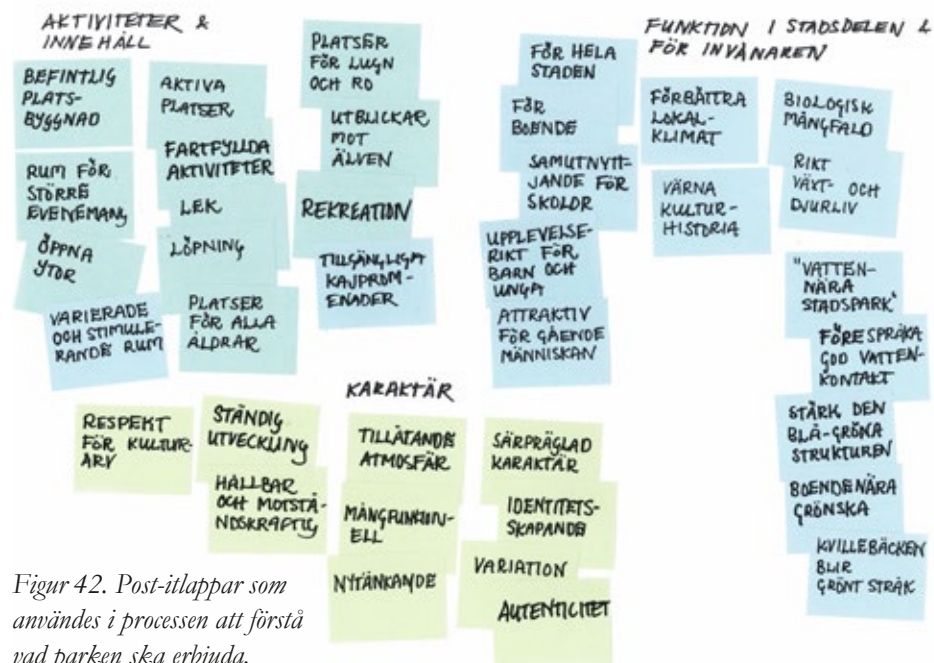 AKTIVITETER &
INNEHÅLL
BEFINTLIG
PLATS-
BYGGNAD
RUM FÖR
STÖRRE
EVENEMANG
ÖPPNA
YTOR
VARIERADE
OCH STIMULE-
RANDE RUM
AKTIVA
PLATSER
FARTFYLLDA
AKTIVITETER
LEK
LÖPNING
PLATSER
FÖR ALLA
ÅLDRAR
PLATSER
FÖR LUGN
OCH RO
UTBLICKAR
MOT
ÄLVEN
REKREATION
TILLGÄNGLIGA
KAJPROM-
ENADER
FUNKTION I STADSDELEN &
FÖR INVÅNAREN
FÖR HELA
STADEN
FÖR
BOENDE
SAMUTNYTT-
JANDE FÖR
SKOLOR
UPPLEVELSE-
RIKT FÖR
BARN OCH
UNGA
ATTRAKTIV
FÖR GÅENDE
MÄNNISKAN
FÖRBÄTTRA
LOKAL-
KLIMAT
VÄRNA
KULTUR-
HISTORIA
BIOLOGISK
MÅNGFALD
RIKT
VÄXT- OCH
DJURLIV
"VATTEN-
NÄRA
STADSPARK"
FÖRESPRÅKA
GOD VATTEN-
KONTAKT
STÄRK DEN
BLÅ-GRÖNA
STRUKTUREN
BOENDENÄRA
GRÖNSKA
KVILLEBÄCKEN
BLIR
GRÖNT STRÅK
KARAKTÄR
RESPEKT
FÖR KULTUR-
ARV
STÄNDIG
UTVECKLING
HÅLLBAR
OCH MOTSTÅ-
NDSKRAFTIG
TILLÅTANDE
ATMOSFÄR
MÅNGFUNKTION-
ELL
NYTÄNKANDE
SÄRPRÄGLAD
KARAKTÄR
IDENTITETS-
SKAPANDE
VARIATION
AUTENTICITET
Figur 42. Post-itlappar som
användes i processen att förstå
vad parken ska erbjuda.